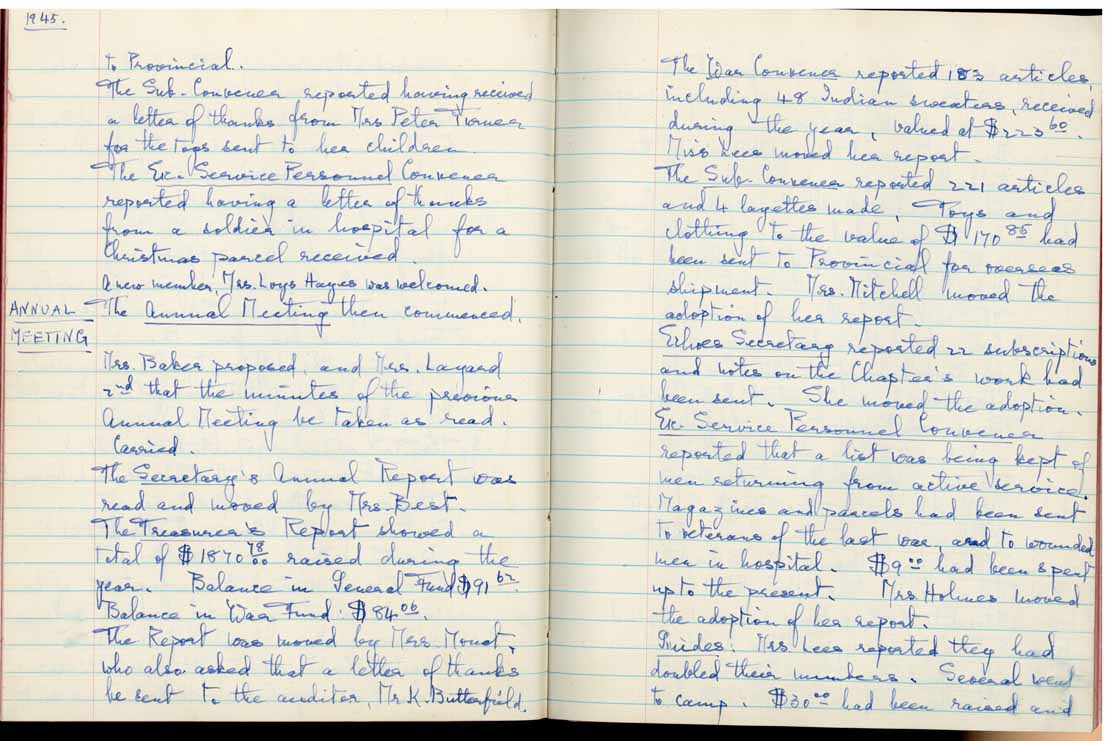 1945.
to Provincial.
The Sub-Convener reported having received
a letter of thanks from Mrs Peter Turner
for the toys sent to her children.
The Ex-Service Personnel Convener
reported having a letter of thanks
from a soldier in hospital for a
Christmas parcel received.
A new member, Mrs. Loys Hayes was welcomed.
ANNUAL
MEETING
The Annual Meeting then commenced.
Mrs. Baker proposed, and Mrs. Layard
2nd that the minutes of the previous
Annual Meeting be taken as read.
Carried.
The Secretary's Annual Report was
read and moved by Mrs. Best.
The Treasurer's Report showed a
total of $1870 78/00 raised during the
year. Balance in General Fund $91 62.
Balance in War Fund $84 06.
The Report was moved by Mrs. Mouat,
who also asked that a letter of thanks
be sent to the auditor, Mr. K. Butterfield.
The War Convener reported 183 articles,
including 48 Indian sweaters, received
during the year, valued at $223 60.
Miss Lees moved her report.
The Sub-Convener reported 221 articles
and 4 layettes made, Toys and
clothing to the value of $170 85 had
been sent to Provincial for overseas
shipment. Mrs. Mitchell moved the
adoption of her report.
Echoes Secretary reported 22 subscriptions
and notes on the Chapter's work had
been sent. She moved the adoption.
Ex-Service Personnel Convener
reported that a list was being kept of
men returning from active service.
Magazines and parcels had been sent
to veterans of the last war, and to wounded
men in hospital. $9 00 had been spent
up to the present. Mrs Holmes moved
the adoption of her report.
Guides. Mrs Lees reported they had
doubled their numbers. Several went
to camp. $30 00 had been raised and